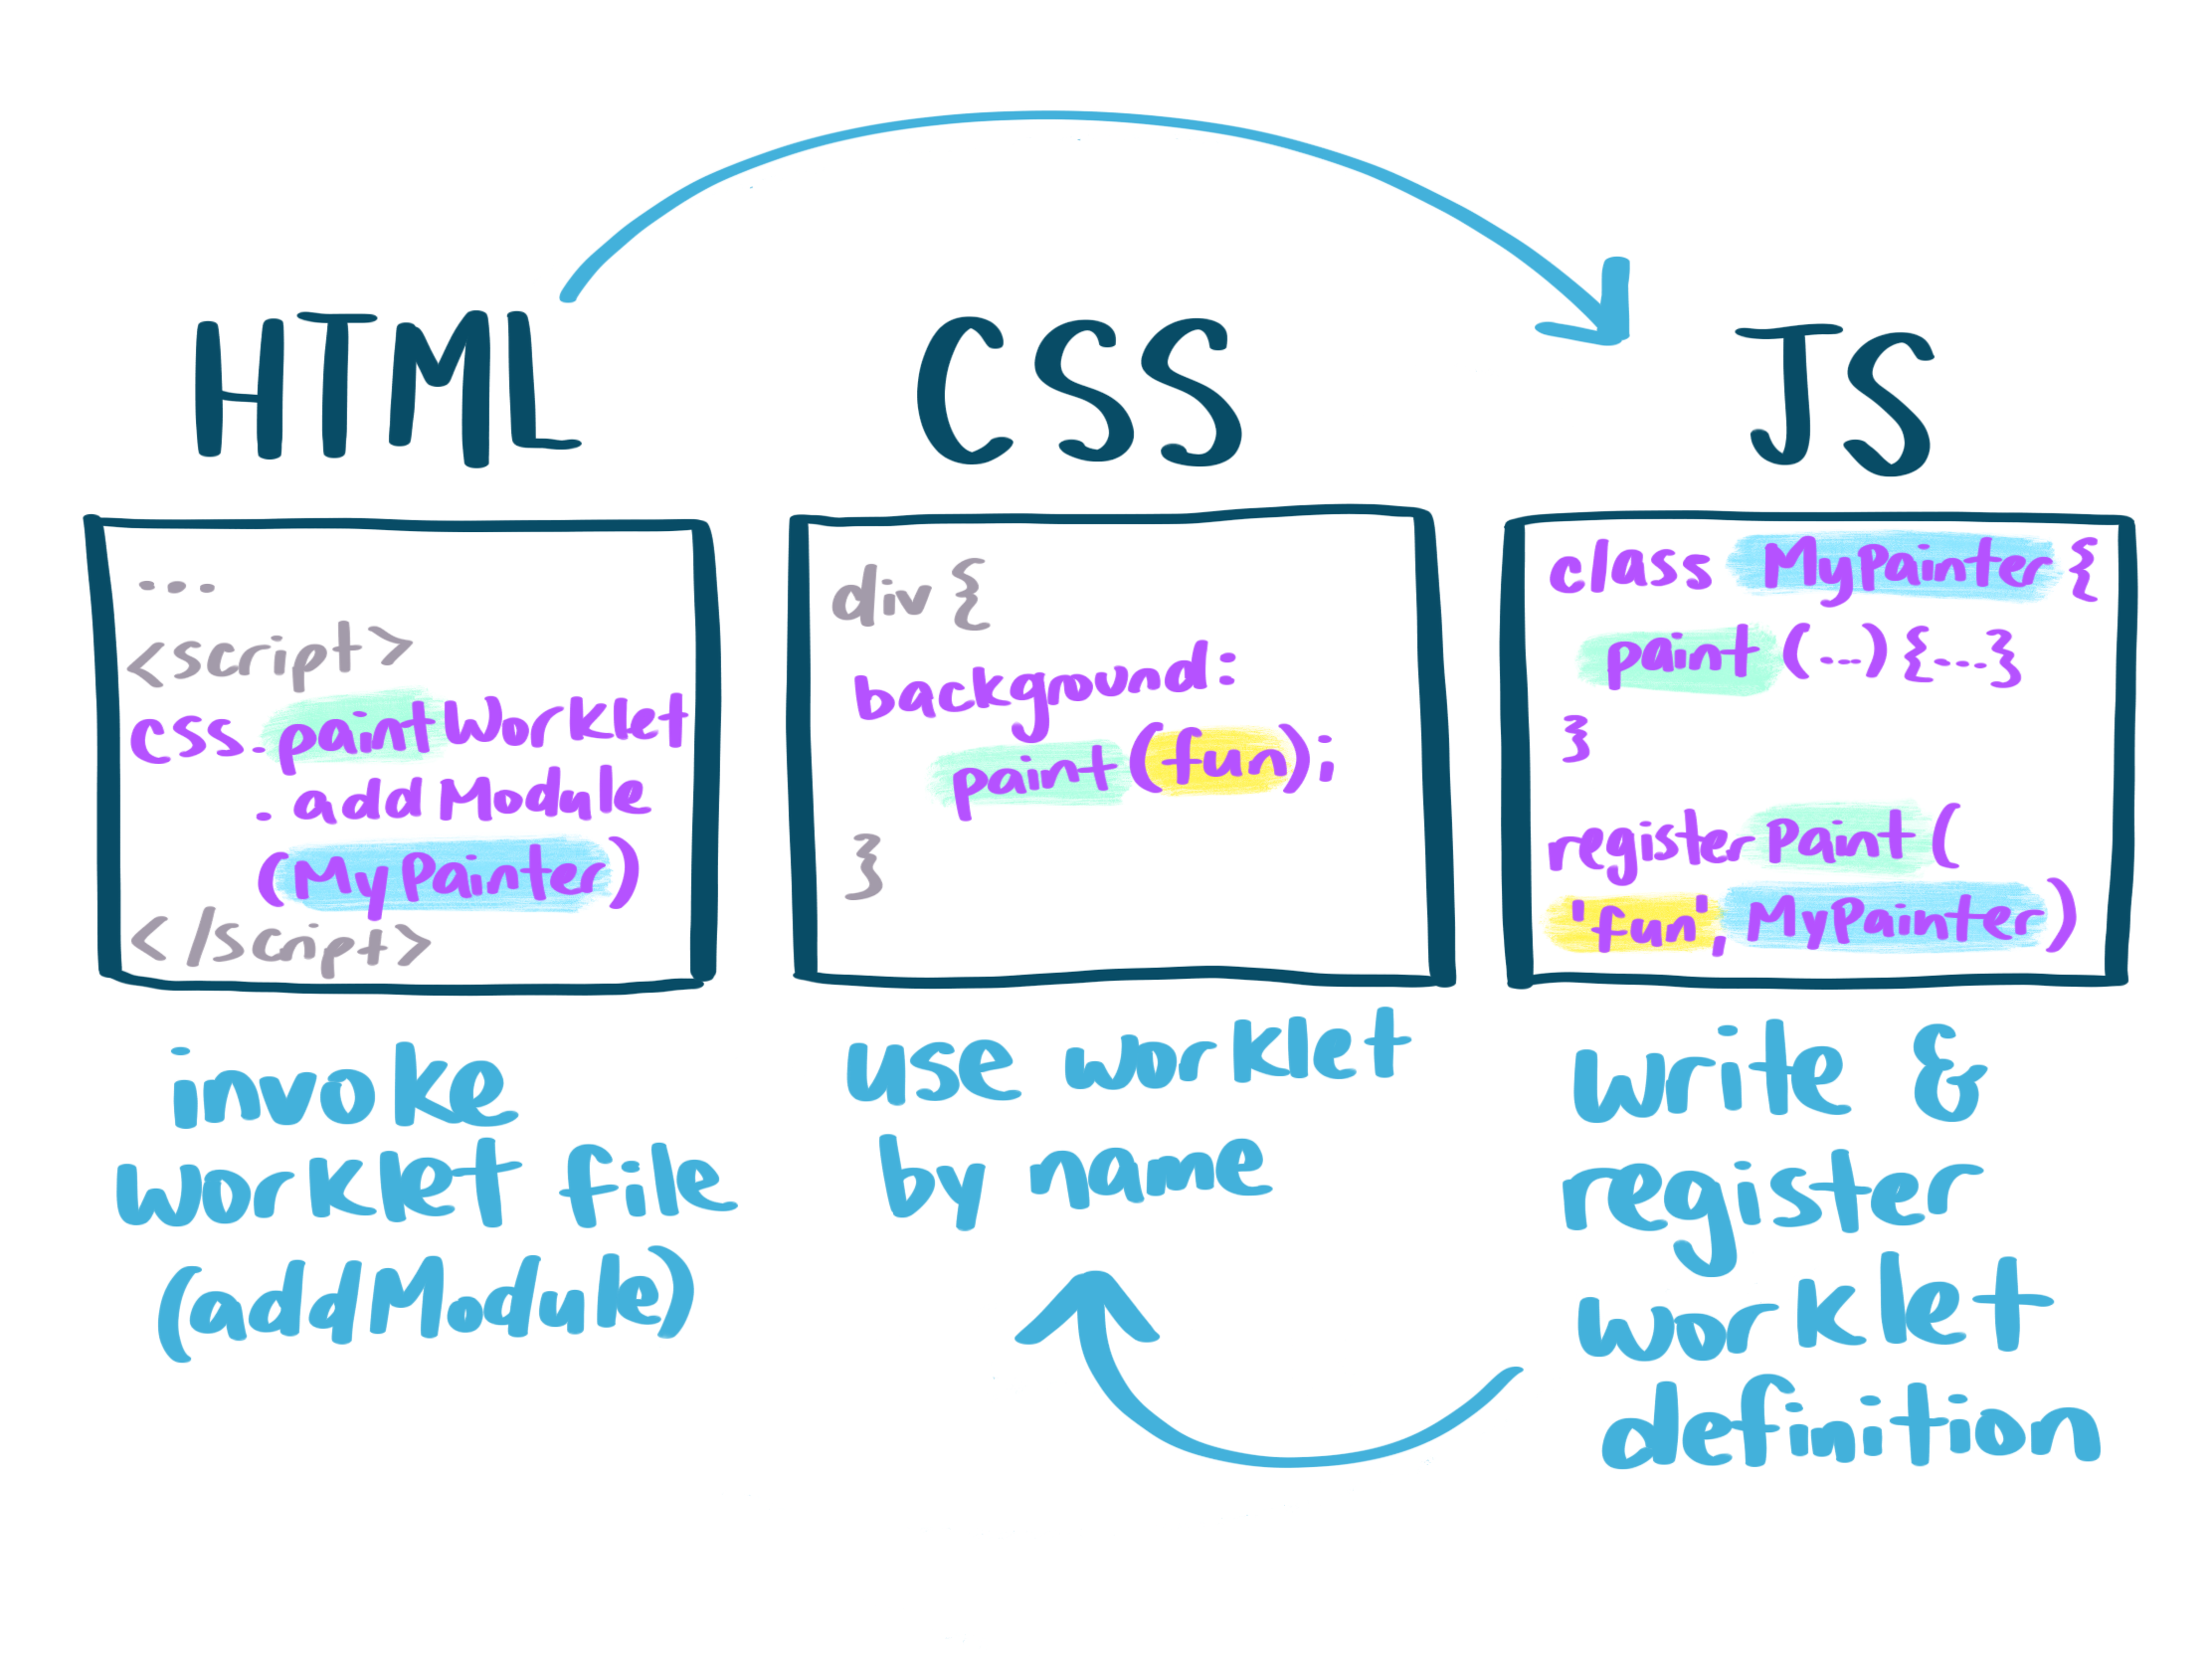 HTML
...
<script>
css.paintWorklet
.addModule
(MyPainter)
</script>
invoke
worklet file
(addModule)
CSS
div {
background:
paint(fun);
}
use worklet
by name
JS
class MyPainter {
paint (...) {...}
}
registerPaint (
'fun', MyPainter)
write &
register
worklet
definition